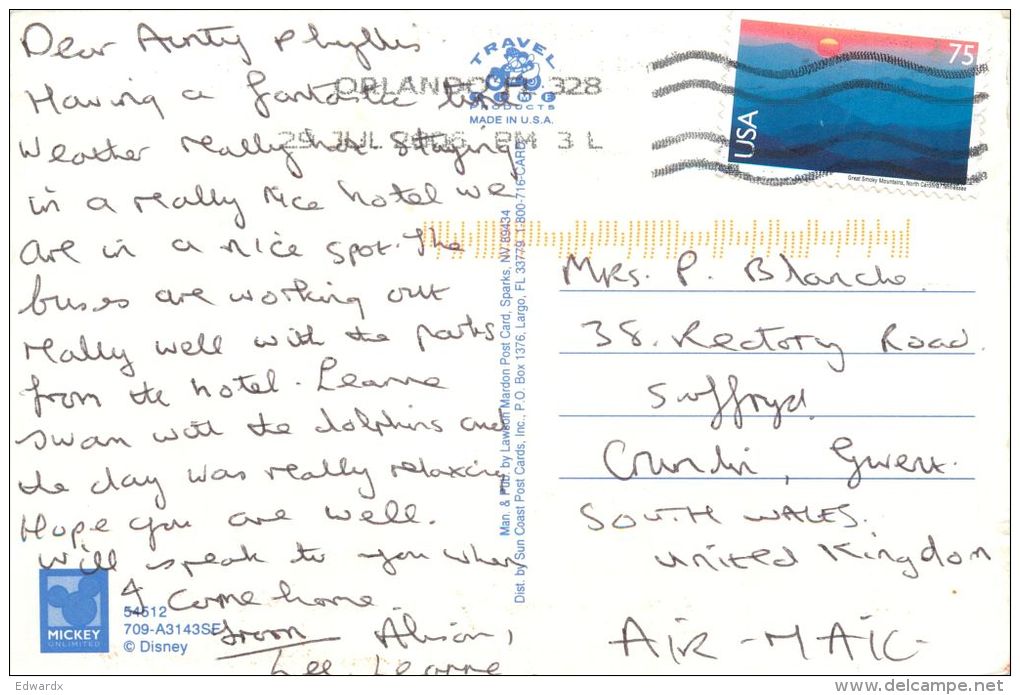 Dear Aunty Phyllis.
Having a fantastic time
Weather really hot staying
in a really nice hotel we
are in a nice spot. The
buses are working out
really well with the parks
from the hotel. Leanne
swam with the dolphins and
the day was really relaxing
Hope you are well.
Will speak to you when
I come home.
from Alison,
Lee, Leanne
54512
709-A3143SE
© Disney
MICKEY
UNLIMITED
TRAVEL
PRODUCTS
MADE IN U.S.A.
ORLANDO FL 328
29 JUL 2006 PM 3 L
Man. & Pub. by Lawson Mardon Post Card, Sparks, NV 89434
Dist. by Sun Coast Post Cards, Inc., P.O. Box 1376, Largo, FL 33779 1-800-716-CARD
75
USA
Great Smoky Mountains, North Carolina/Tennessee
Mrs. P. Blanche.
38. Rectory Road.
Suffryd.
Crumlin, Gwent.
SOUTH WALES.
United Kingdom
AIR-MAIL
Edwardx
www.delcampe.net